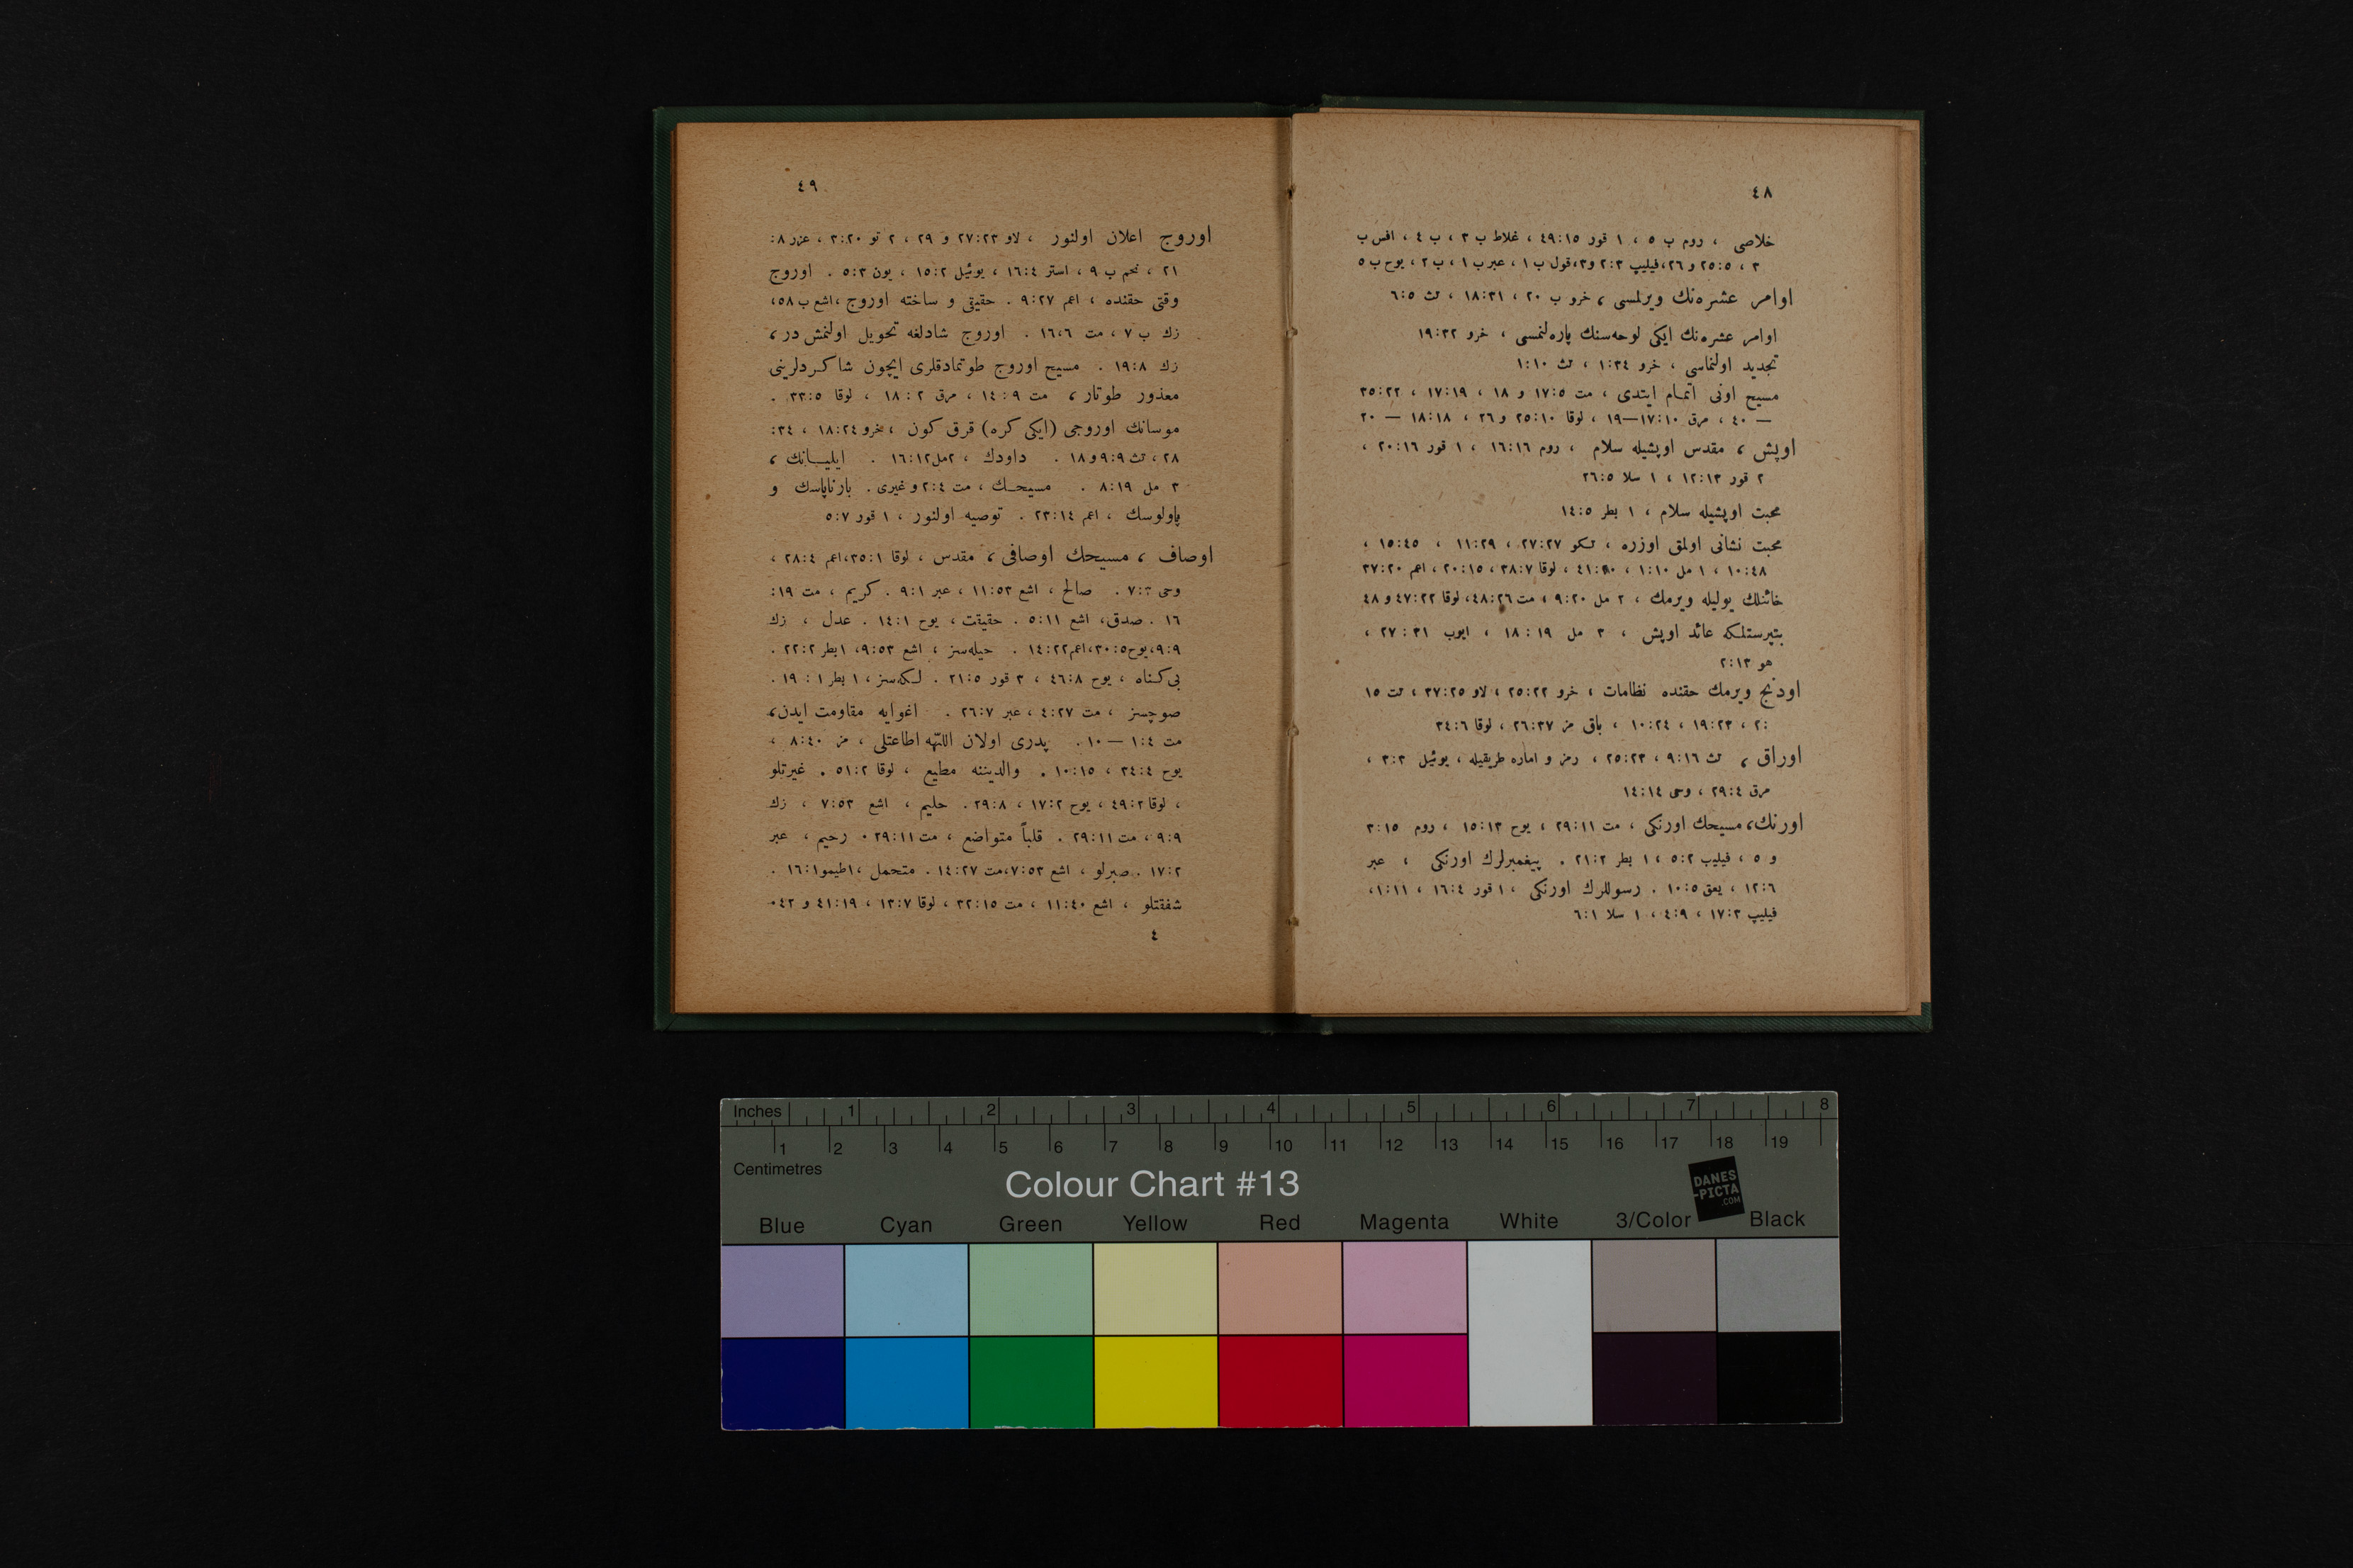 ٤٨
خلاصی ، روم ب ٥ ، ١ قور ٤٩:١٥ ، غلاط ب ٣ ، ب ٤ ، افس ب
٣ ، ٢٥:٥ و ٢٦،فیلیپ ٢:٣ و٣،قول ب ١ ، عبر ب ١ ، ب ٢ ، یوح ب ٥
اوامر عشره‌نك ویرلمسی ، خرو ب ٢٠ ، ١٨:٣١ ، تث ٦:٥
اوامر عشره‌نك ایكی لوحه‌سنك پاره‌لنمسی ، خرو ١٩:٣٢
تجدید اولنماسی ، خرو ١:٣٤ ، تث ١:١٠
مسیح اونی اتمـام ایتدی ، مت ١٧:٥ و ١٨ ، ١٧:١٩ ، ٣٥:٢٢
— ٤٠ ، مرق ١٧:١٠—١٩ ، لوقا ٢٥:١٠ و ٢٦ ، ١٨:١٨ — ٢٠
اوپش ، مقدس اوپشیله سلام ، روم ١٦:١٦ ، ١ قور ٢٠:١٦ ،
٢ قور ١٢:١٣ ، ١ سلا ٢٦:٥
محبت اوپشیله سلام ، ١ بطر ١٤:٥
محبت نشانی اولمق اوزره ، تكو ٢٧:٢٧ ، ١١:٢٩ ، ١٥:٤٥ ،
١٠:٤٨ ، ١ مل ١:١٠ ، ، لوقا ٣٨:٧ ، ٢٠:١٥ ، اعم ٣٧:٢٠
خائنلك یولیله ویرمك ، ٢ مل ٩:٢٠ ، مت ٤٨:٢٦، لوقا ٤٧:٢٢ و ٤٨
بتپرستلكه عائد اوپش ، ٣ مل ١٩ : ١٨ ، ایوب ٣١ : ٢٧ ،
هو ٢:١٣
اودنج ویرمك حقنده نظامات ، خرو ٢٥:٢٢ ، لاو ٣٧:٢٥ ، تث ١٥
:٢ ، ١٩:٢٣ ، ١٠:٢٤ ، باق مز ٢٦:٣٧ ، لوقا ٣٤:٦
اوراق ، تث ٩:١٦ ، ٢٥:٢٣ ، رمز و اماره طریقیله ، یوئیل ٣:٣ ،
مرق ٢٩:٤ ، وحی ١٤:١٤
اورنك، مسیحك اورنكی ، مت ٢٩:١١ ، یوح ١٥:١٣ ، روم ٣:١٥
و ٥ ، فیلیپ ٥:٢ ، ١ بطر ٢١:٢ . پیغمبرلرك اورنكی ، عبر
١٢:٦ ، یعق ١٠:٥ . رسوللرك اورنكی ، ١ قور ١٦:٤ ، ١:١١،
فیلیپ ١٧:٣ ، ٤:٩ ، ١ سلا ٦:١
٤٩
اوروج اعلان اولنور ، لاو ٢٧:٢٣ و ٢٩ ، ٢ تو ٣:٢٠ ، عزر ٨:
٢١ ، نحم ب ٩ ، استر ١٦:٤ ، یوئیل ١٥:٢ ، یون ٥:٣ . اوروج
وقتی حقنده ، اعم ٩:٢٧ . حقیقی و ساخته اوروج ،اشع ب ٥٨،
زك ب ٧ ، مت ١٦،٦ . اوروج شادلغه تحویل اولنمش در ،
زك ١٩:٨ . مسیح اوروج طوتمادقلری ایچون شاكـردلرینی
معذور طوتار ، مت ٩ : ١٤ ، مرق ٢ : ١٨ ، لوقا ٣٣:٥ .
موسانك اوروجی (ایكی كره) قرق كون ، خرو ١٨:٢٤ ، ٣٤:
٢٨ ، تث ٩:٩ و ١٨ . داودك ، ٢مل١٦:١٢ . ایلیـانك ،
٣ مل ٨:١٩ . مسیحـك ، مت ٢:٤ و غیری . بارناپاسك و
پاولوسك ، اعم ٢٣:١٤ . توصیه اولنور ، ١ قور ٥:٧
اوصاف ، مسیحك اوصافی ، مقدس ، لوقا ٣٥:١،اعم ٢٨:٤ ،
وحی ٧:٣ . صالح ، اشع ١١:٥٣ ، عبر ٩:١ . كریم ، مت ١٩:
١٦ . صدق، اشع ٥:١١ . حقیقت ، یوح ١٤:١ . عدل ، زك
٩:٩،یوح ٣٠:٥،اعم١٤:٢٢ . حیله‌سز ، اشع ٩:٥٣، ١بطر ٢٢:٢ .
بی كـناه ، یوح ٤٦:٨ ، ٣ قور ٢١:٥ . لـكه‌سز ، ١ بطر ١ : ١٩ .
صوچسز ، مت ٤:٢٧ ، عبر ٢٦:٧ . اغوایه مقاومت ایدن،
مت ١:٤ —١٠ . پدری اولان اللّٰهه اطاعتلی ، مز ٨:٤٠ ،
یوح ٣٤:٤ ، ١٠:١٥ . والدیننه مطیع ، لوقا ٥١:٢ . غیرتلو
، لوقا ٤٩:٢ ، یوح ١٧:٢ ، ٢٩:٨ . حلیم ، اشع ٧:٥٣ ، زك
٩:٩ ، مت ٢٩:١١ . قلباً متواضع ، مت ٢٩:١١ . رحیم ، عبر
١٧:٢ . صبرلو ، اشع ٧:٥٣،مت ١٤:٢٧ . متحمل ،١طیمو١٦:١ .
شفقتلو ، اشع ١١:٤٠ ، مت ٣٢:١٥ ، لوقا ١٣:٧ ، ٤١:١٩ و ٤٢.
٤
Inches 1 2 3 4 5 6 7 8
1 2 3 4 5 6 7 8 9 10 11 12 13 14 15 16 17 18 19
Centimetres
Colour Chart #13
DANES
-PICTA
.COM
Blue Cyan Green Yellow Red Magenta White 3/Color Black